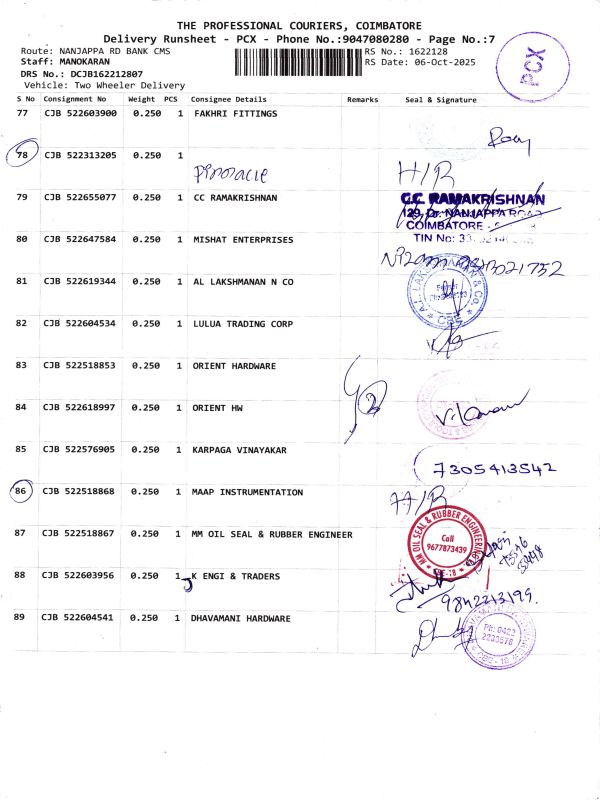 THE PROFESSIONAL COURIERS, COIMBATORE
Delivery Runsheet - PCX - Phone No.:9047080280 - Page No.:7
PCX
Route: NANJAPPA RD BANK CMS RS No.: 1622128
Staff: MANOKARAN RS Date: 06-Oct-2025
DRS No.: DCJB162212807
Vehicle: Two Wheeler Delivery
S No Consignment No Weight PCS Consignee Details Remarks Seal & Signature
77 CJB 522603900 0.250 1 FAKHRI FITTINGS
78 CJB 522313205 0.250 1 H/R
79 CJB 522655077 0.250 1 CC RAMAKRISHNAN
C.C. RAMAKRISHNAN
129, Dr. NANJAPPA ROAD
COIMBATORE -
TIN No: 33
80 CJB 522647584 0.250 1 MISHAT ENTERPRISES
81 CJB 522619344 0.250 1 AL LAKSHMANAN N CO
82 CJB 522604534 0.250 1 LULUA TRADING CORP
83 CJB 522518853 0.250 1 ORIENT HARDWARE
84 CJB 522618997 0.250 1 ORIENT HW
85 CJB 522576905 0.250 1 KARPAGA VINAYAKAR
7305413542
86 CJB 522518868 0.250 1 MAAP INSTRUMENTATION H/R
87 CJB 522518867 0.250 1 MM OIL SEAL & RUBBER ENGINEER
MM OIL SEAL & RUBBER ENGINEERING
Call
9677873439
CBE-18
88 CJB 522603956 0.250 1 K ENGI & TRADERS
9842213199.
89 CJB 522604541 0.250 1 DHAVAMANI HARDWARE
Ph: 0422
CBE-18